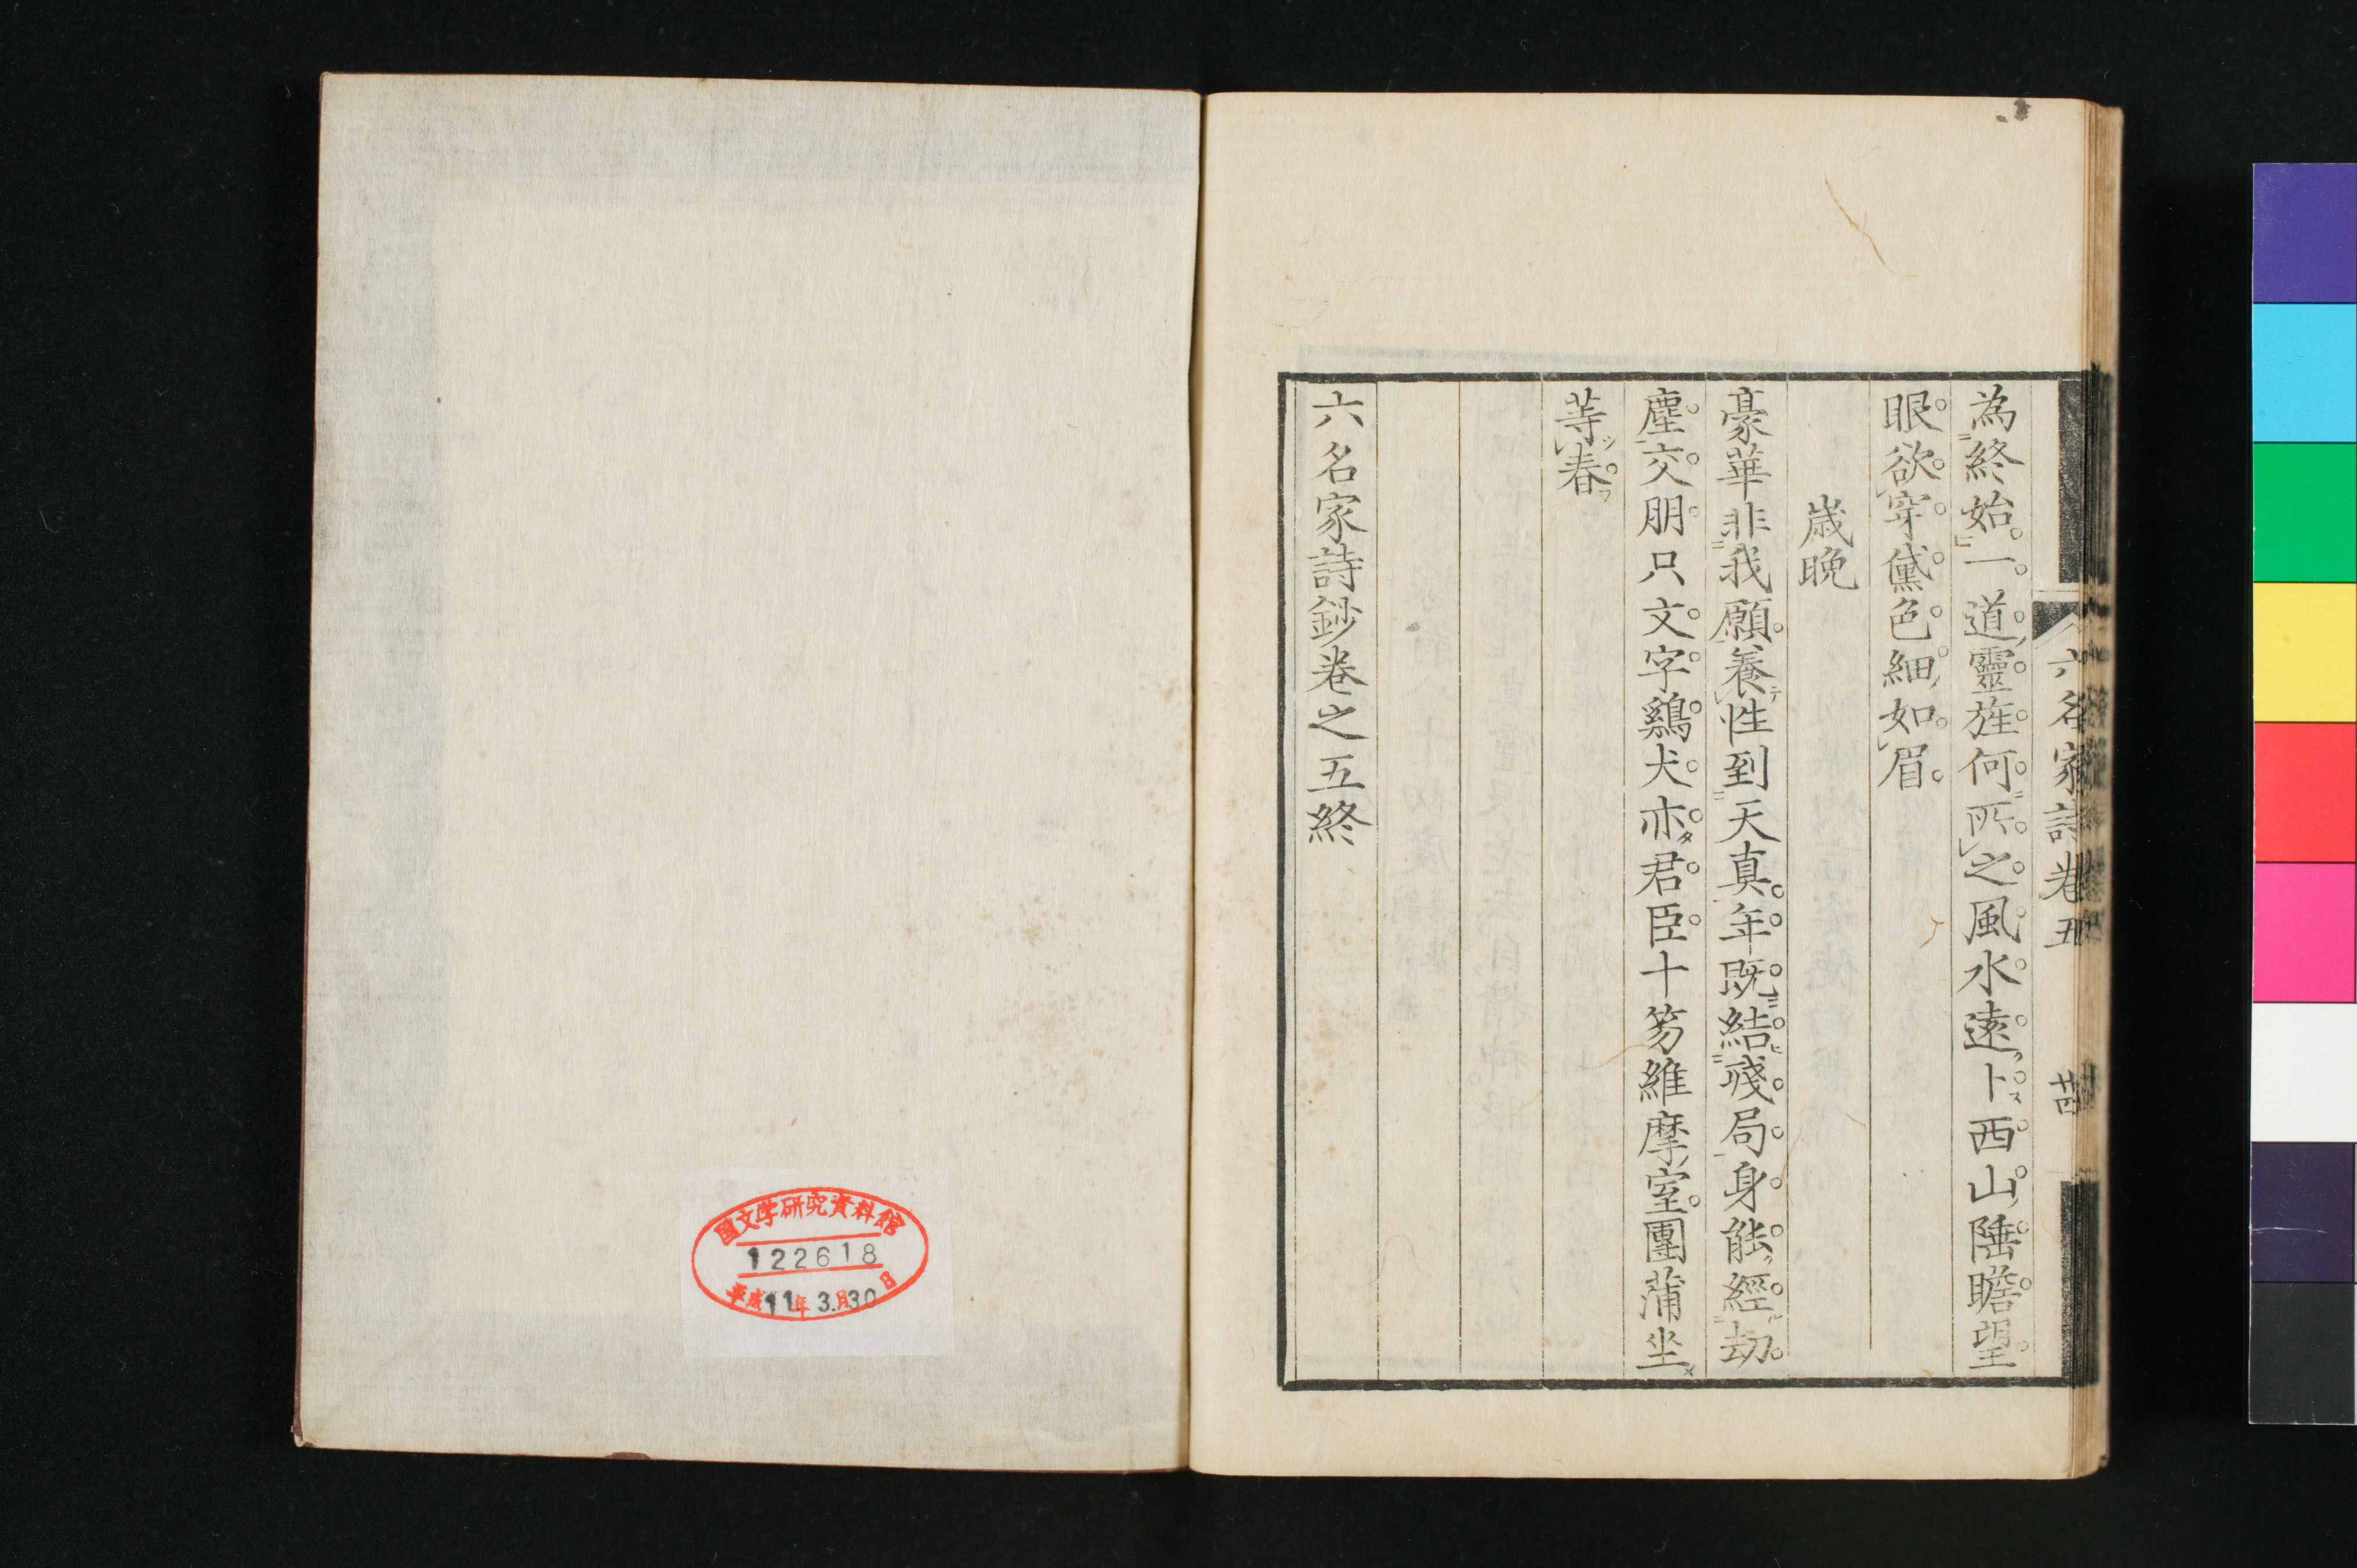 為終始一道靈旌何所之風水遠卜西山陲瞻望
眼欲穿黛色細如眉
歲晚
豪華非我願養性到天真年既結殘局身能經劫
塵交朋只文字鷄犬亦君臣十笏維摩室團蒲坐
等春
六名家詩鈔卷之五終
六名家詩卷五
廿四
國文学研究資料館
122618
平成11年3月30日